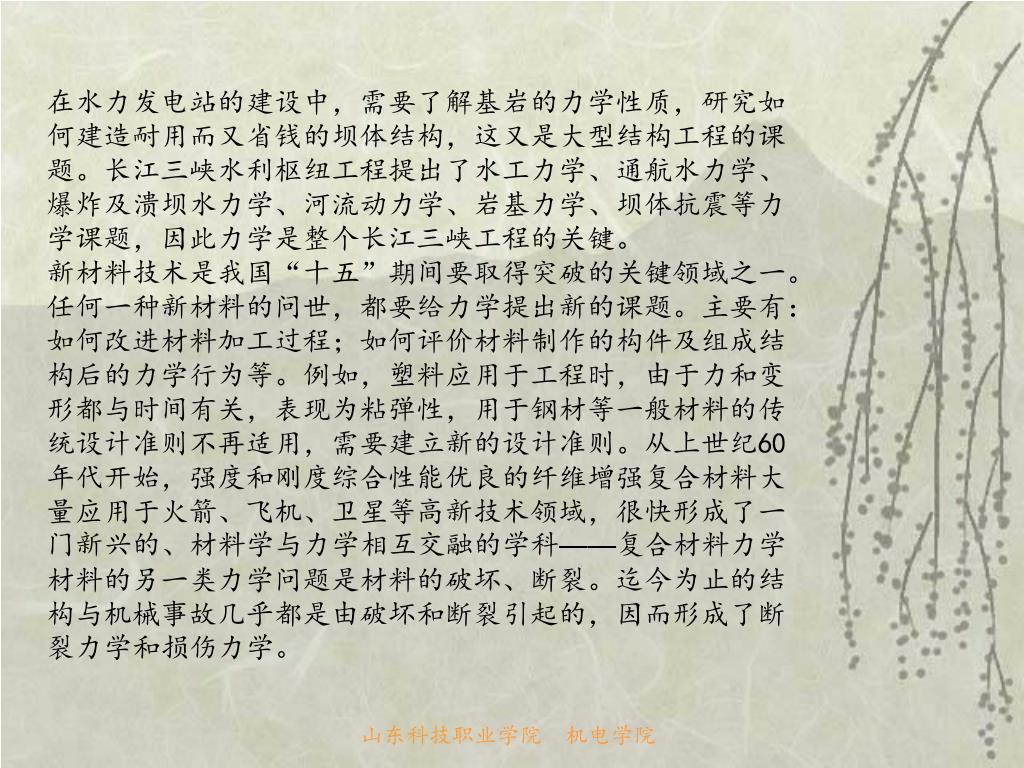 在水力发电站的建设中，需要了解基岩的力学性质，研究如
何建造耐用而又省钱的坝体结构，这又是大型结构工程的课
题。长江三峡水利枢纽工程提出了水工力学、通航水力学、
爆炸及溃坝水力学、河流动力学、岩基力学、坝体抗震等力
学课题，因此力学是整个长江三峡工程的关键。
新材料技术是我国“十五”期间要取得突破的关键领域之一。
任何一种新材料的问世，都要给力学提出新的课题。主要有：
如何改进材料加工过程；如何评价材料制作的构件及组成结
构后的力学行为等。例如，塑料应用于工程时，由于力和变
形都与时间有关，表现为粘弹性，用于钢材等一般材料的传
统设计准则不再适用，需要建立新的设计准则。从上世纪60
年代开始，强度和刚度综合性能优良的纤维增强复合材料大
量应用于火箭、飞机、卫星等高新技术领域，很快形成了一
门新兴的、材料学与力学相互交融的学科——复合材料力学
材料的另一类力学问题是材料的破坏、断裂。迄今为止的结
构与机械事故几乎都是由破坏和断裂引起的，因而形成了断
裂力学和损伤力学。
山东科技职业学院　机电学院